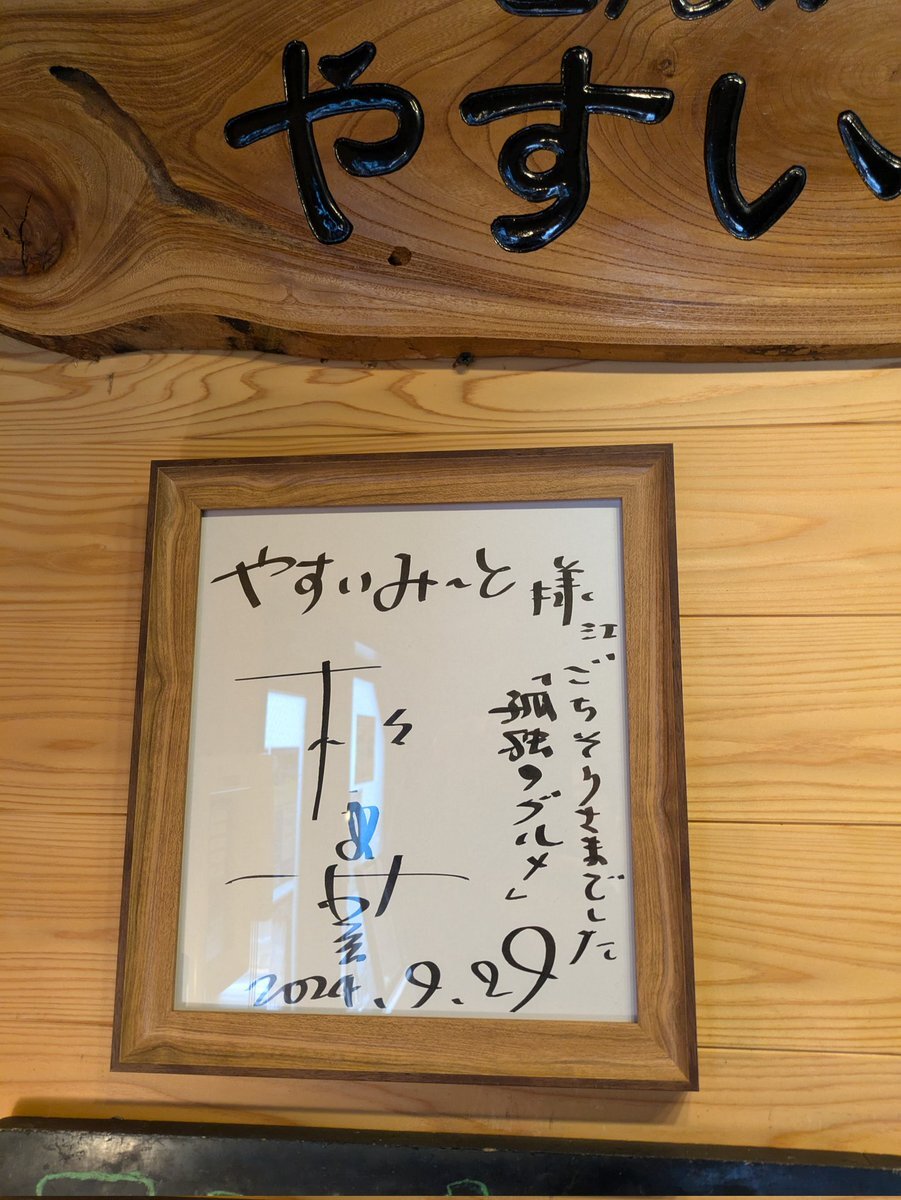 やすい
やすいみーと 様江
ごちそうさまでした
「孤独のグルメ」
2024.9.29